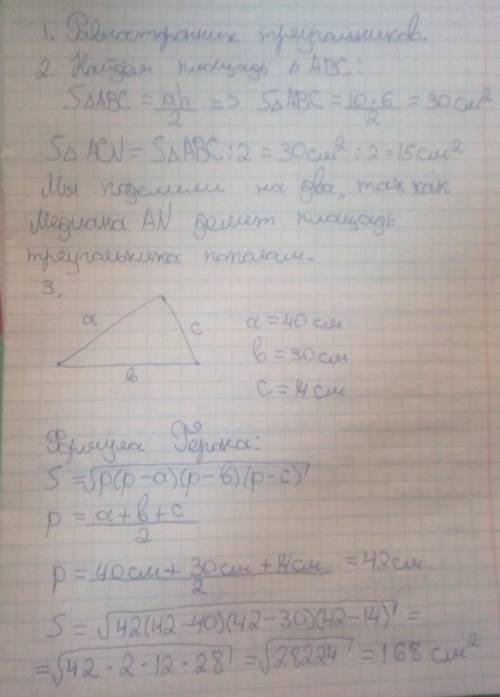 1. Равносторонних треугольников.
2. Найдём площадь △ ABC:
S△ABC = ah/2 => S△ABC = 10·6/2 = 30см²
S△ ACN = S△ABC : 2 = 30см² : 2 = 15см²
Мы поделили на два, так как
медиана AN делит площадь
треугольника пополам.
3.
a
c
в
a = 40 см
в = 30 см
c = 14 см
Формула Герона:
S = √p(p-a)(p-в)(p-c)
p = a+в+c/2
p = 40см + 30см + 14см/2 = 42см
S = √42(42-40)(42-30)(42-14) =
= √42·2·12·28 = √28224 = 168 см²